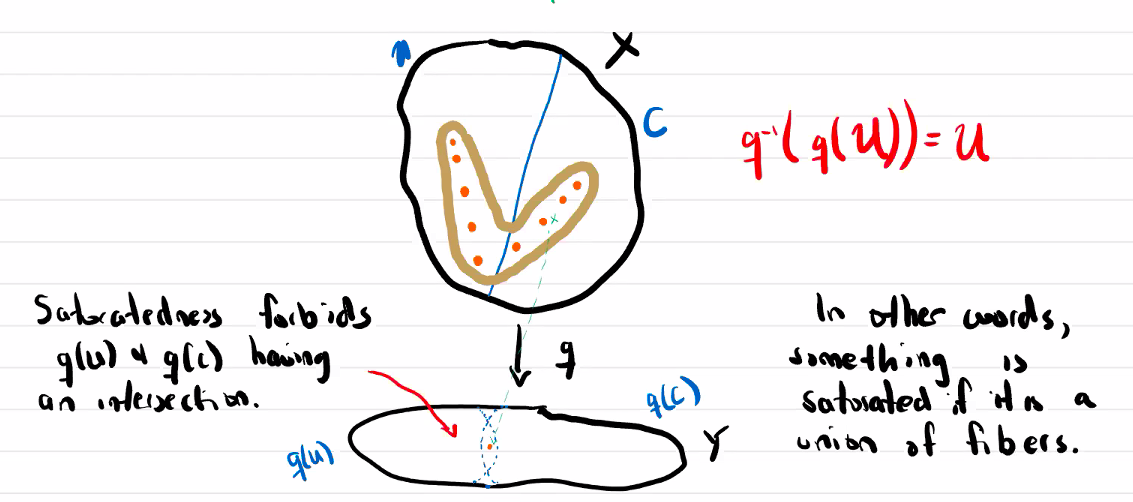 X
C
q⁻¹(q(U)) = U
Saturatedness forbids
q(u) & q(c) having
an intersection.
q
In other words,
something is
saturated if it is a
union of fibers.
q(c)
q(u)
Y